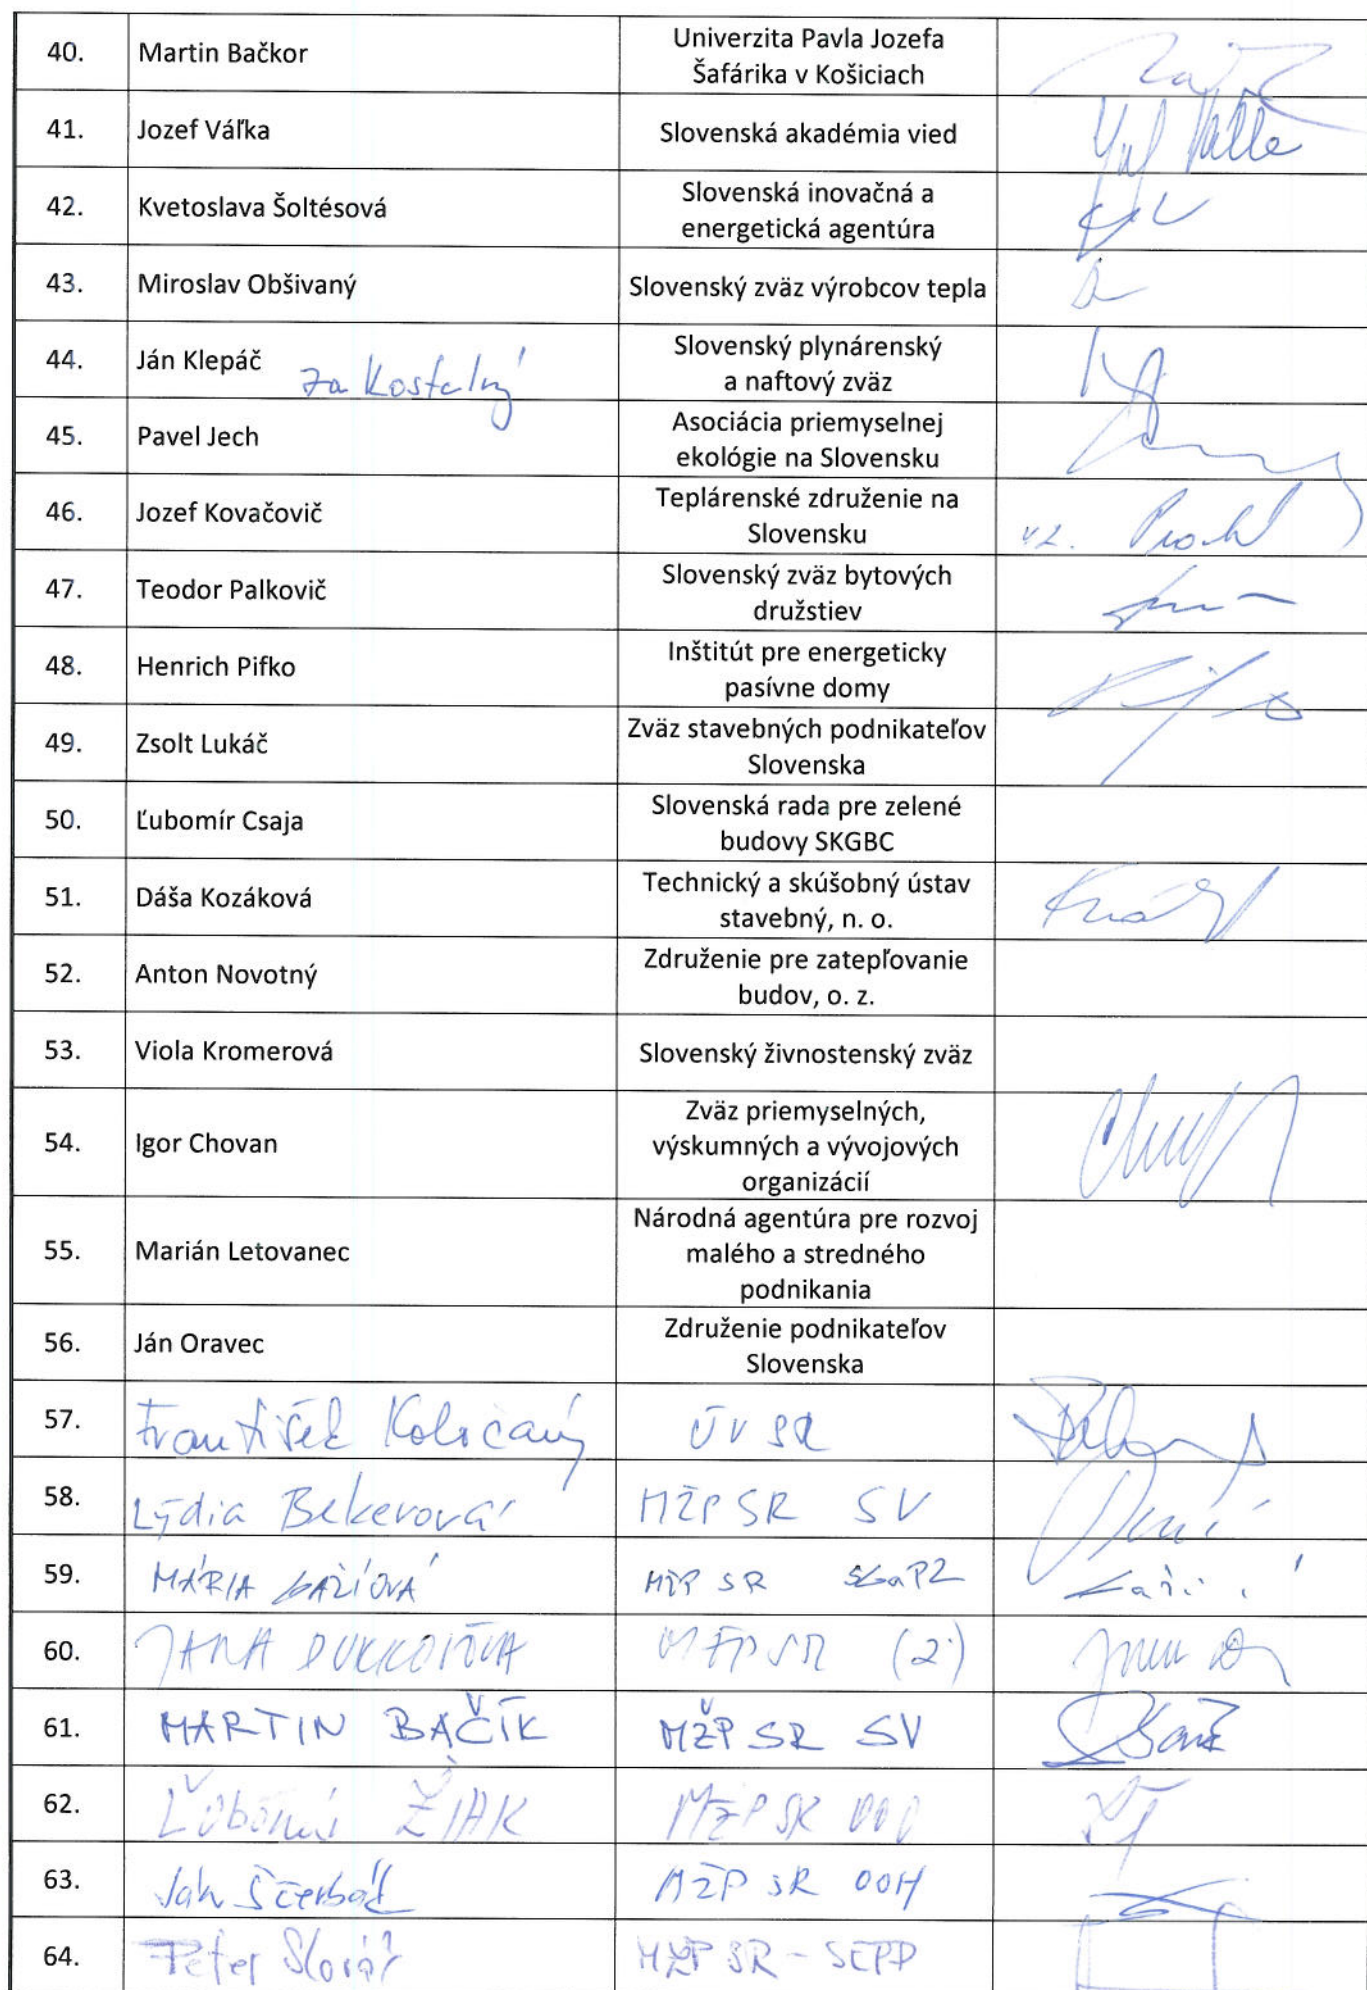 40. Martin Bačkor Univerzita Pavla Jozefa
Šafárika v Košiciach
41. Jozef Váľka Slovenská akadémia vied
42. Kvetoslava Šoltésová Slovenská inovačná a
energetická agentúra
43. Miroslav Obšivaný Slovenský zväz výrobcov tepla
44. Ján Klepáč za Kostalný Slovenský plynárenský
a naftový zväz
45. Pavel Jech Asociácia priemyselnej
ekológie na Slovensku
46. Jozef Kovačovič Teplárenské združenie na
Slovensku vz.
47. Teodor Palkovič Slovenský zväz bytových
družstiev
48. Henrich Pifko Inštitút pre energeticky
pasívne domy
49. Zsolt Lukáč Zväz stavebných podnikateľov
Slovenska
50. Ľubomír Csaja Slovenská rada pre zelené
budovy SKGBC
51. Dáša Kozáková Technický a skúšobný ústav
stavebný, n. o.
52. Anton Novotný Združenie pre zatepľovanie
budov, o. z.
53. Viola Kromerová Slovenský živnostenský zväz
54. Igor Chovan Zväz priemyselných,
výskumných a vývojových
organizácií
55. Marián Letovanec Národná agentúra pre rozvoj
malého a stredného
podnikania
56. Ján Oravec Združenie podnikateľov
Slovenska
57. František ÚV SR
58. Lýdia Bekerová MŽP SR SV
59. MÁRIA MŽP SR
60. JANA MŽP SR (2)
61. MARTIN BAČÍK MŽP SR SV
62. Ľubomír ŽIAK MŽP SR
63. Ján Ščerbák MŽP SR OOH
64. Peter MŽP SR -